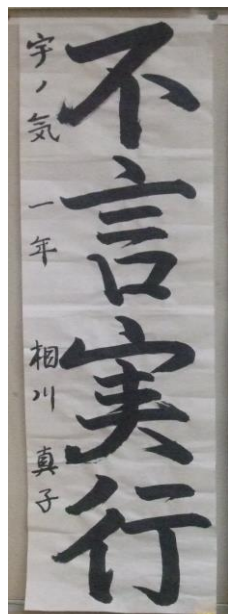 不言実行
宇ノ気 一年 相川 真子